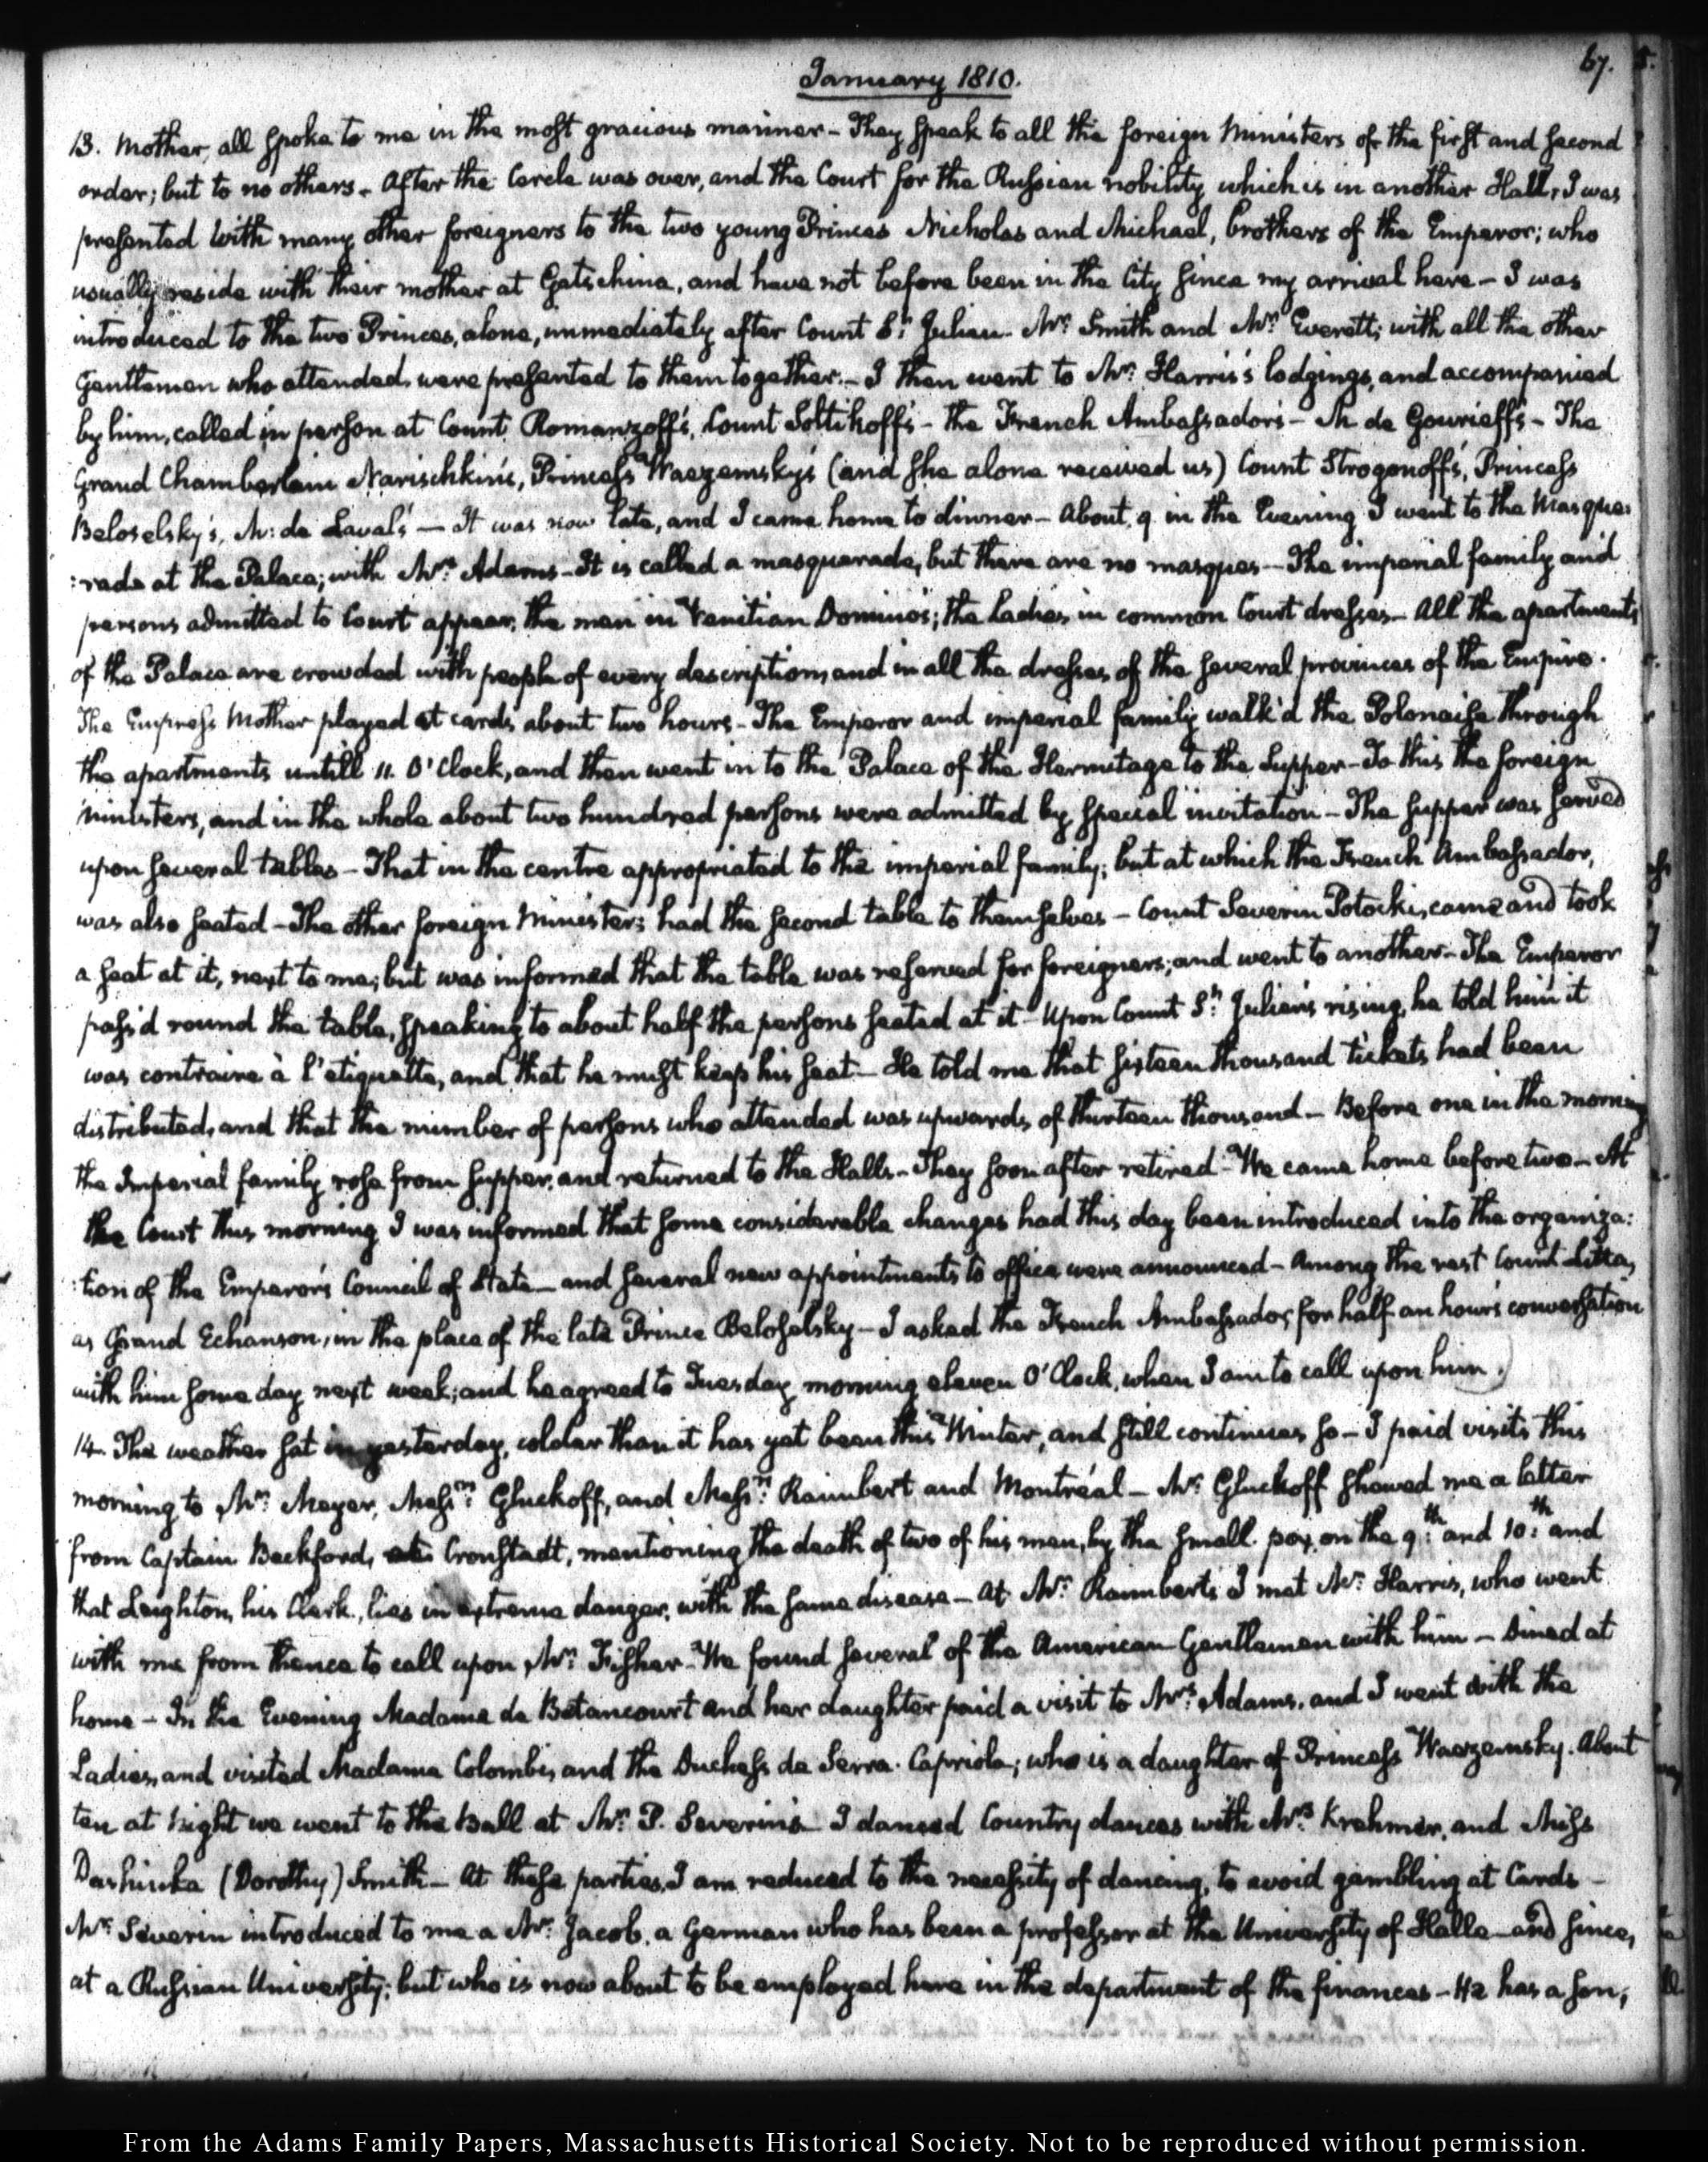 67.
January 1810.
13. Mother, all spoke to me in the most gracious manner – They speak to all the foreign Ministers of the first and second
order; but to no others – After the Cercle was over, and the Court for the Russian nobility which is in another Hall, I was
presented with many other foreigners to the two young Princes Nicholas and Michael, brothers of the Emperor; who
usually reside with their mother at Gatschina, and have not before been in the City since my arrival here – I was
introduced to the two Princes, alone, immediately after Count St: Julian. Mr: Smith and Mr: Everett, with all the other
Gentlemen who attended, were presented to them together. – I then went to Mr: Harris's lodgings, and accompanied
by him, called in person at Count Romanzoff's, Count Soltikoff's – the French Ambassador's – M. de Gourieff's – The
Grand Chamberlain Narischkin's, Princess Waezemsky's (and she alone received us) Count Strogonoff's, Princess
Beloselsky's, M: de Laval's — It was now late, and I came home to dinner – About 9 in the Evening I went to the Masque:
:rade at the Palace; with Mrs: Adams – It is called a masquerade, but there are no masques – The imperial family and
persons admitted to Court appear, the men in Venitian Domino's; the Ladies, in common Court dresses – All the apartments
of the Palace are crowded with people of every description, and in all the dresses of the several provinces of the Empire.
The Empress Mother played at cards, about two hours – The Emperor and imperial family walk'd the Polonaise through
the apartments untill 11. O'Clock, and then went in to the Palace of the Hermitage to the Supper – To this the foreign
Ministers, and in the whole about two hundred persons were admitted by special invitation – The supper was served
upon several tables – That in the centre appropriated to the imperial family; but at which the French Ambassador,
was also seated – The other foreign Ministers had the second table to themselves – Count Severin Potocki, came and took
a seat at it, next to me; but was informed that the table was reserved for foreigners; and went to another – The Emperor
pass'd round the table, speaking to about half the persons seated at it – Upon Count St: Julian's rising, he told him it
was contraire à l'etiquette, and that he must keep his seat – He told me that sixteen thousand tickets had been
distributed, and that the number of persons who attended was upwards of thirteen thousand – Before one in the morning
the Imperial family rose from supper, and returned to the Halls – They soon after retired – We came home before two – At
the Court this morning I was informed that some considerable changes had this day been introduced into the organiza:
:tion of the Emperor's Council of State – and several new appointments to office were announced – Among the rest Count Litta,
as Grand Echanson, in the place of the late Prince Beloselsky – I asked the French Ambassador, for half an hour's conversation
with him some day next week; and he agreed to Tuesday morning eleven O'Clock, when I am to call upon him.
14. The weather sat in yesterday, colder than it has yet been this Winter, and still continues so – I paid visits this
morning to Mr: Meyer, Messrs: Gluckoff, and Messrs: Raimbert and Montréal – Mr: Gluckoff showed me a letter
from Captain Beckford, at Cronstadt, mentioning the death of two of his men, by the small pox, on the 9:th and 10:th and
that Leighton, his Clerk, lies in extreme danger, with the same disease – At Mr: Raimbert's I met Mr: Harris, who went
with me from thence to call upon Mr: Fisher – We found several of the American Gentlemen with him – Dined at
home – In the Evening Madame de Betancourt and her daughter paid a visit to Mrs: Adams, and I went with the
Ladies, and visited Madame Colombi, and the Duchess de Serra-Capriola; who is a daughter of Princess Waezemsky. About
ten at Night we went to the Ball at Mr: P. Severin's – I danced Country dances with Mrs: Krehmer, and Miss
Dashinka (Dorothy) Smith – At these parties, I am reduced to the necessity of dancing, to avoid gambling at Cards –
Mr: Severin introduced to me a Mr: Jacob, a German who has been a professor at the University of Halle – and since,
at a Russian University; but who is now about to be employed here in the department of the finances – He has a son,
From the Adams Family Papers, Massachusetts Historical Society. Not to be reproduced without permission.